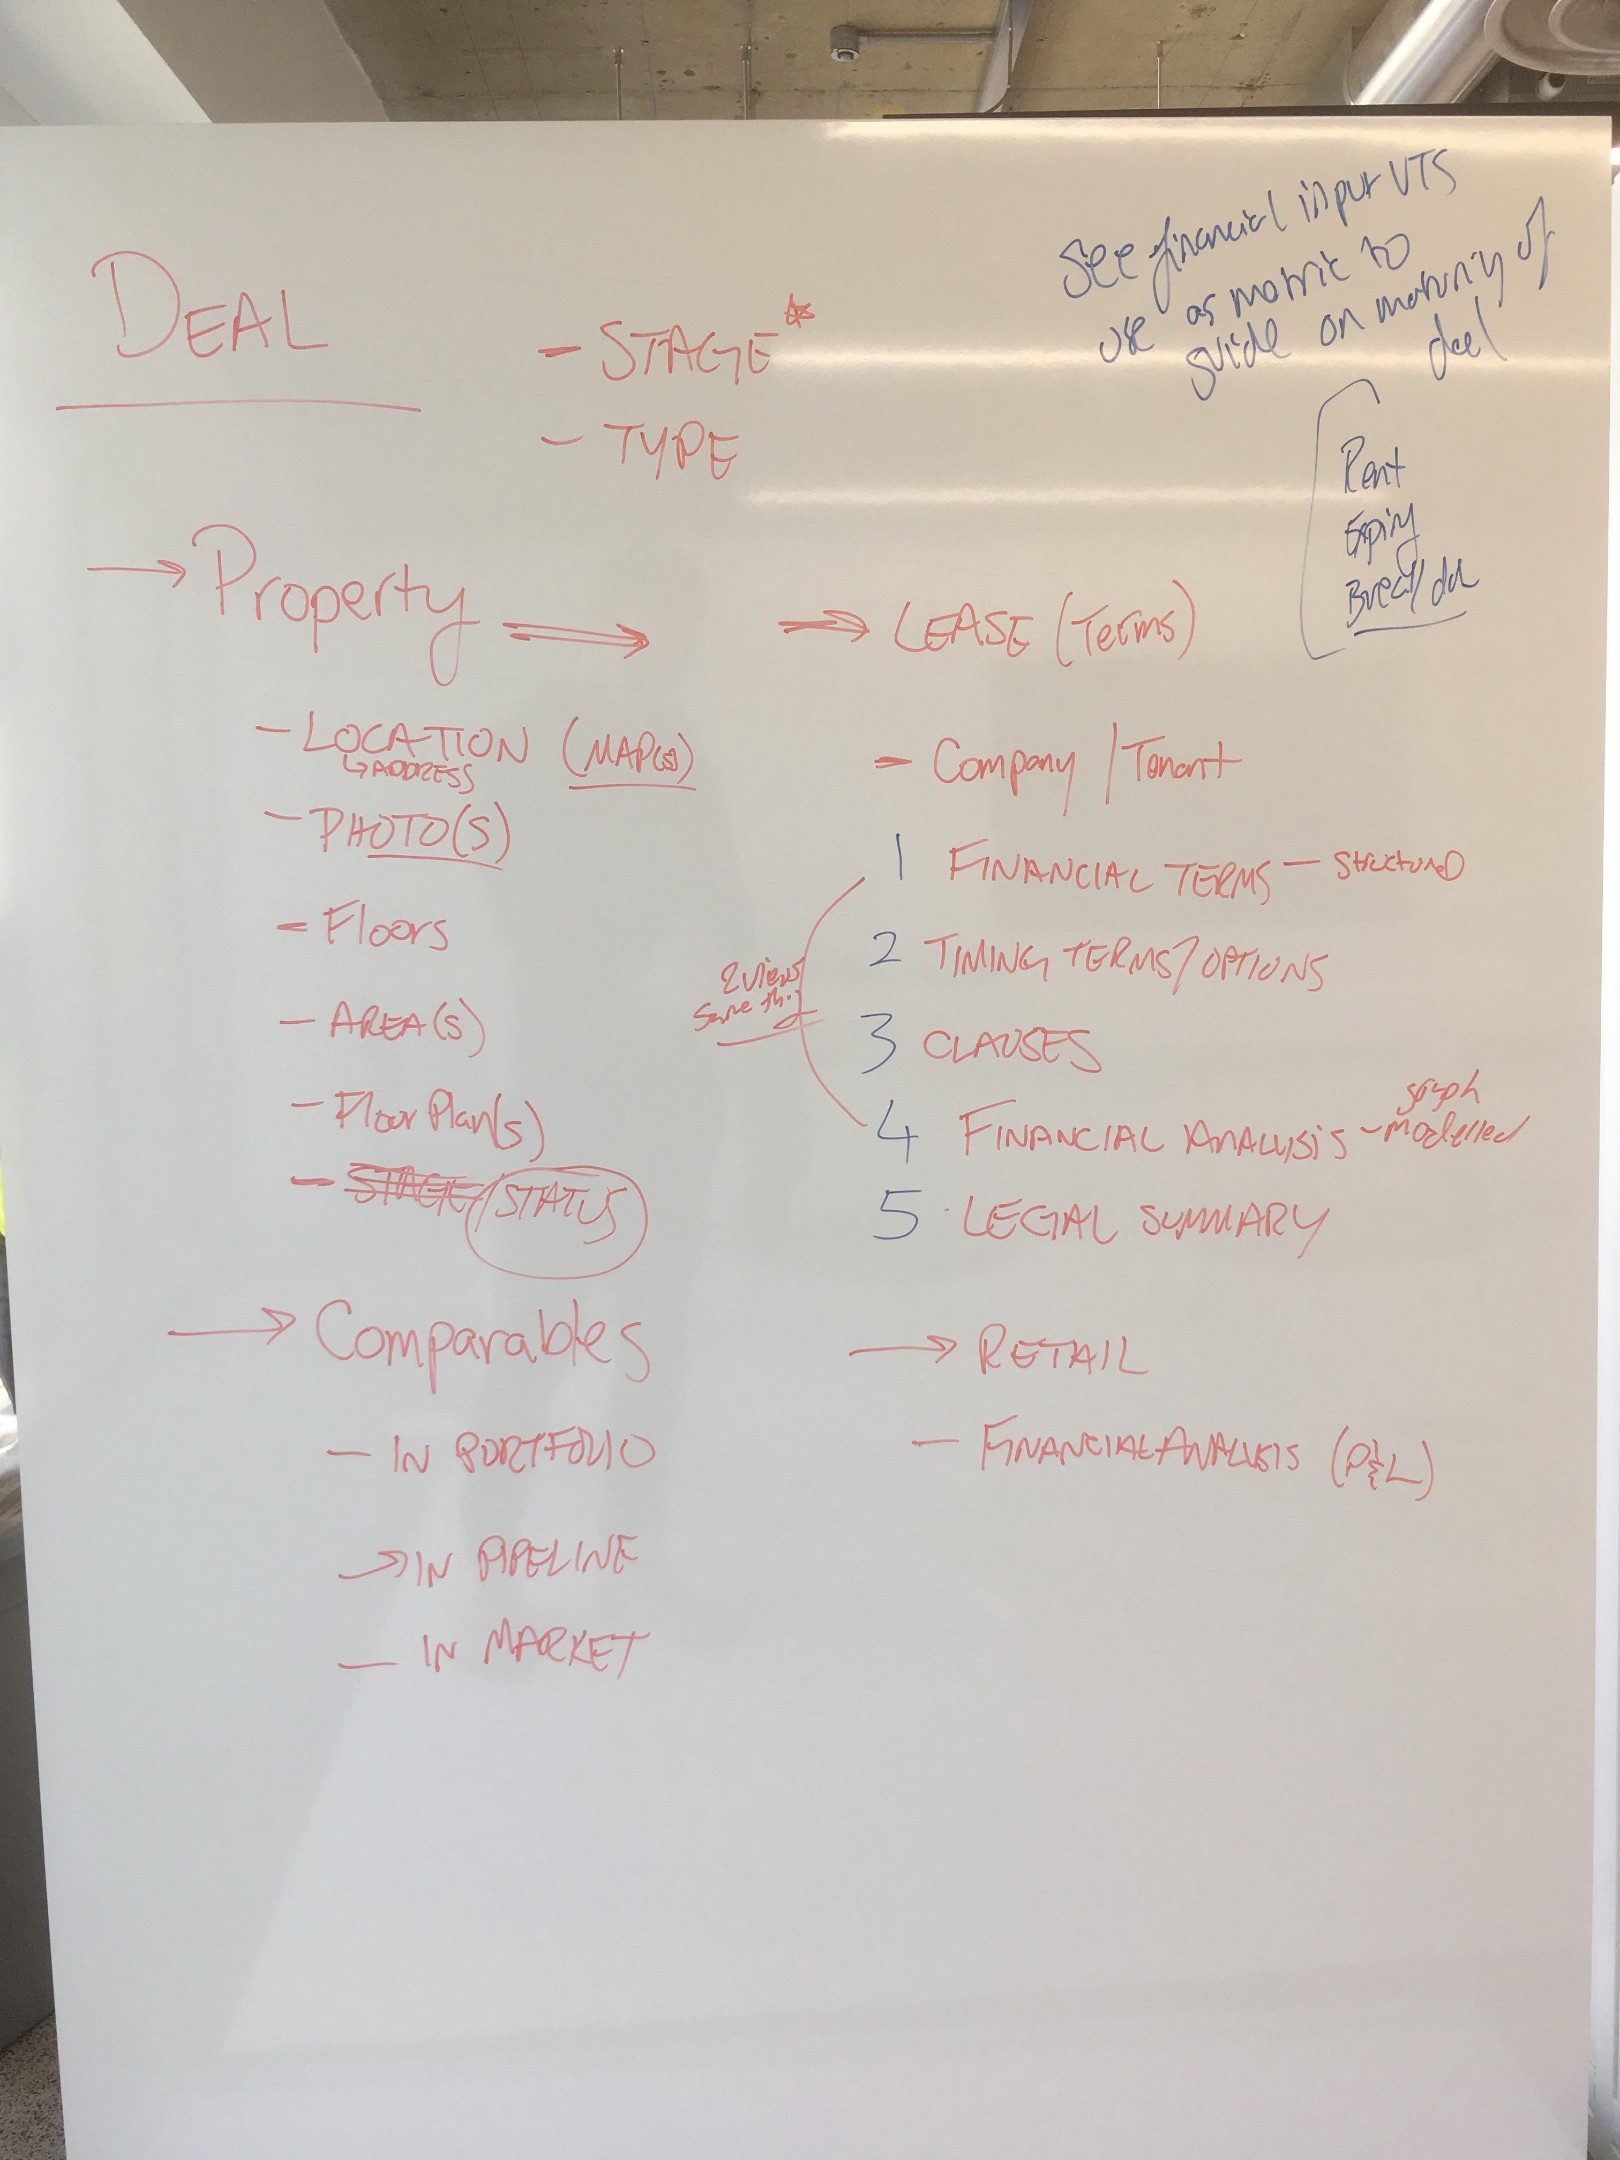 DEAL
- STAGE *
- TYPE
See financial input VTS
use as metric to
guide on maturity of
deal
Rent
Expiry
→ Property ⇒
- LOCATION (MAP(S))
↳ ADDRESS
- PHOTO(S)
- Floors
- AREA(S)
- Floor Plan(s)
- STAGE/STATUS
→ Comparables
- IN PORTFOLIO
→ IN PIPELINE
- IN MARKET
⇒ LEASE (Terms)
- Company / Tenant
1 FINANCIAL TERMS - STRUCTURED
2 TIMING TERMS/OPTIONS
3 CLAUSES
4 FINANCIAL ANALYSIS - graph modelled
5 LEGAL SUMMARY
2 views
same
→ RETAIL
- FINANCIAL ANALYSIS (P&L)